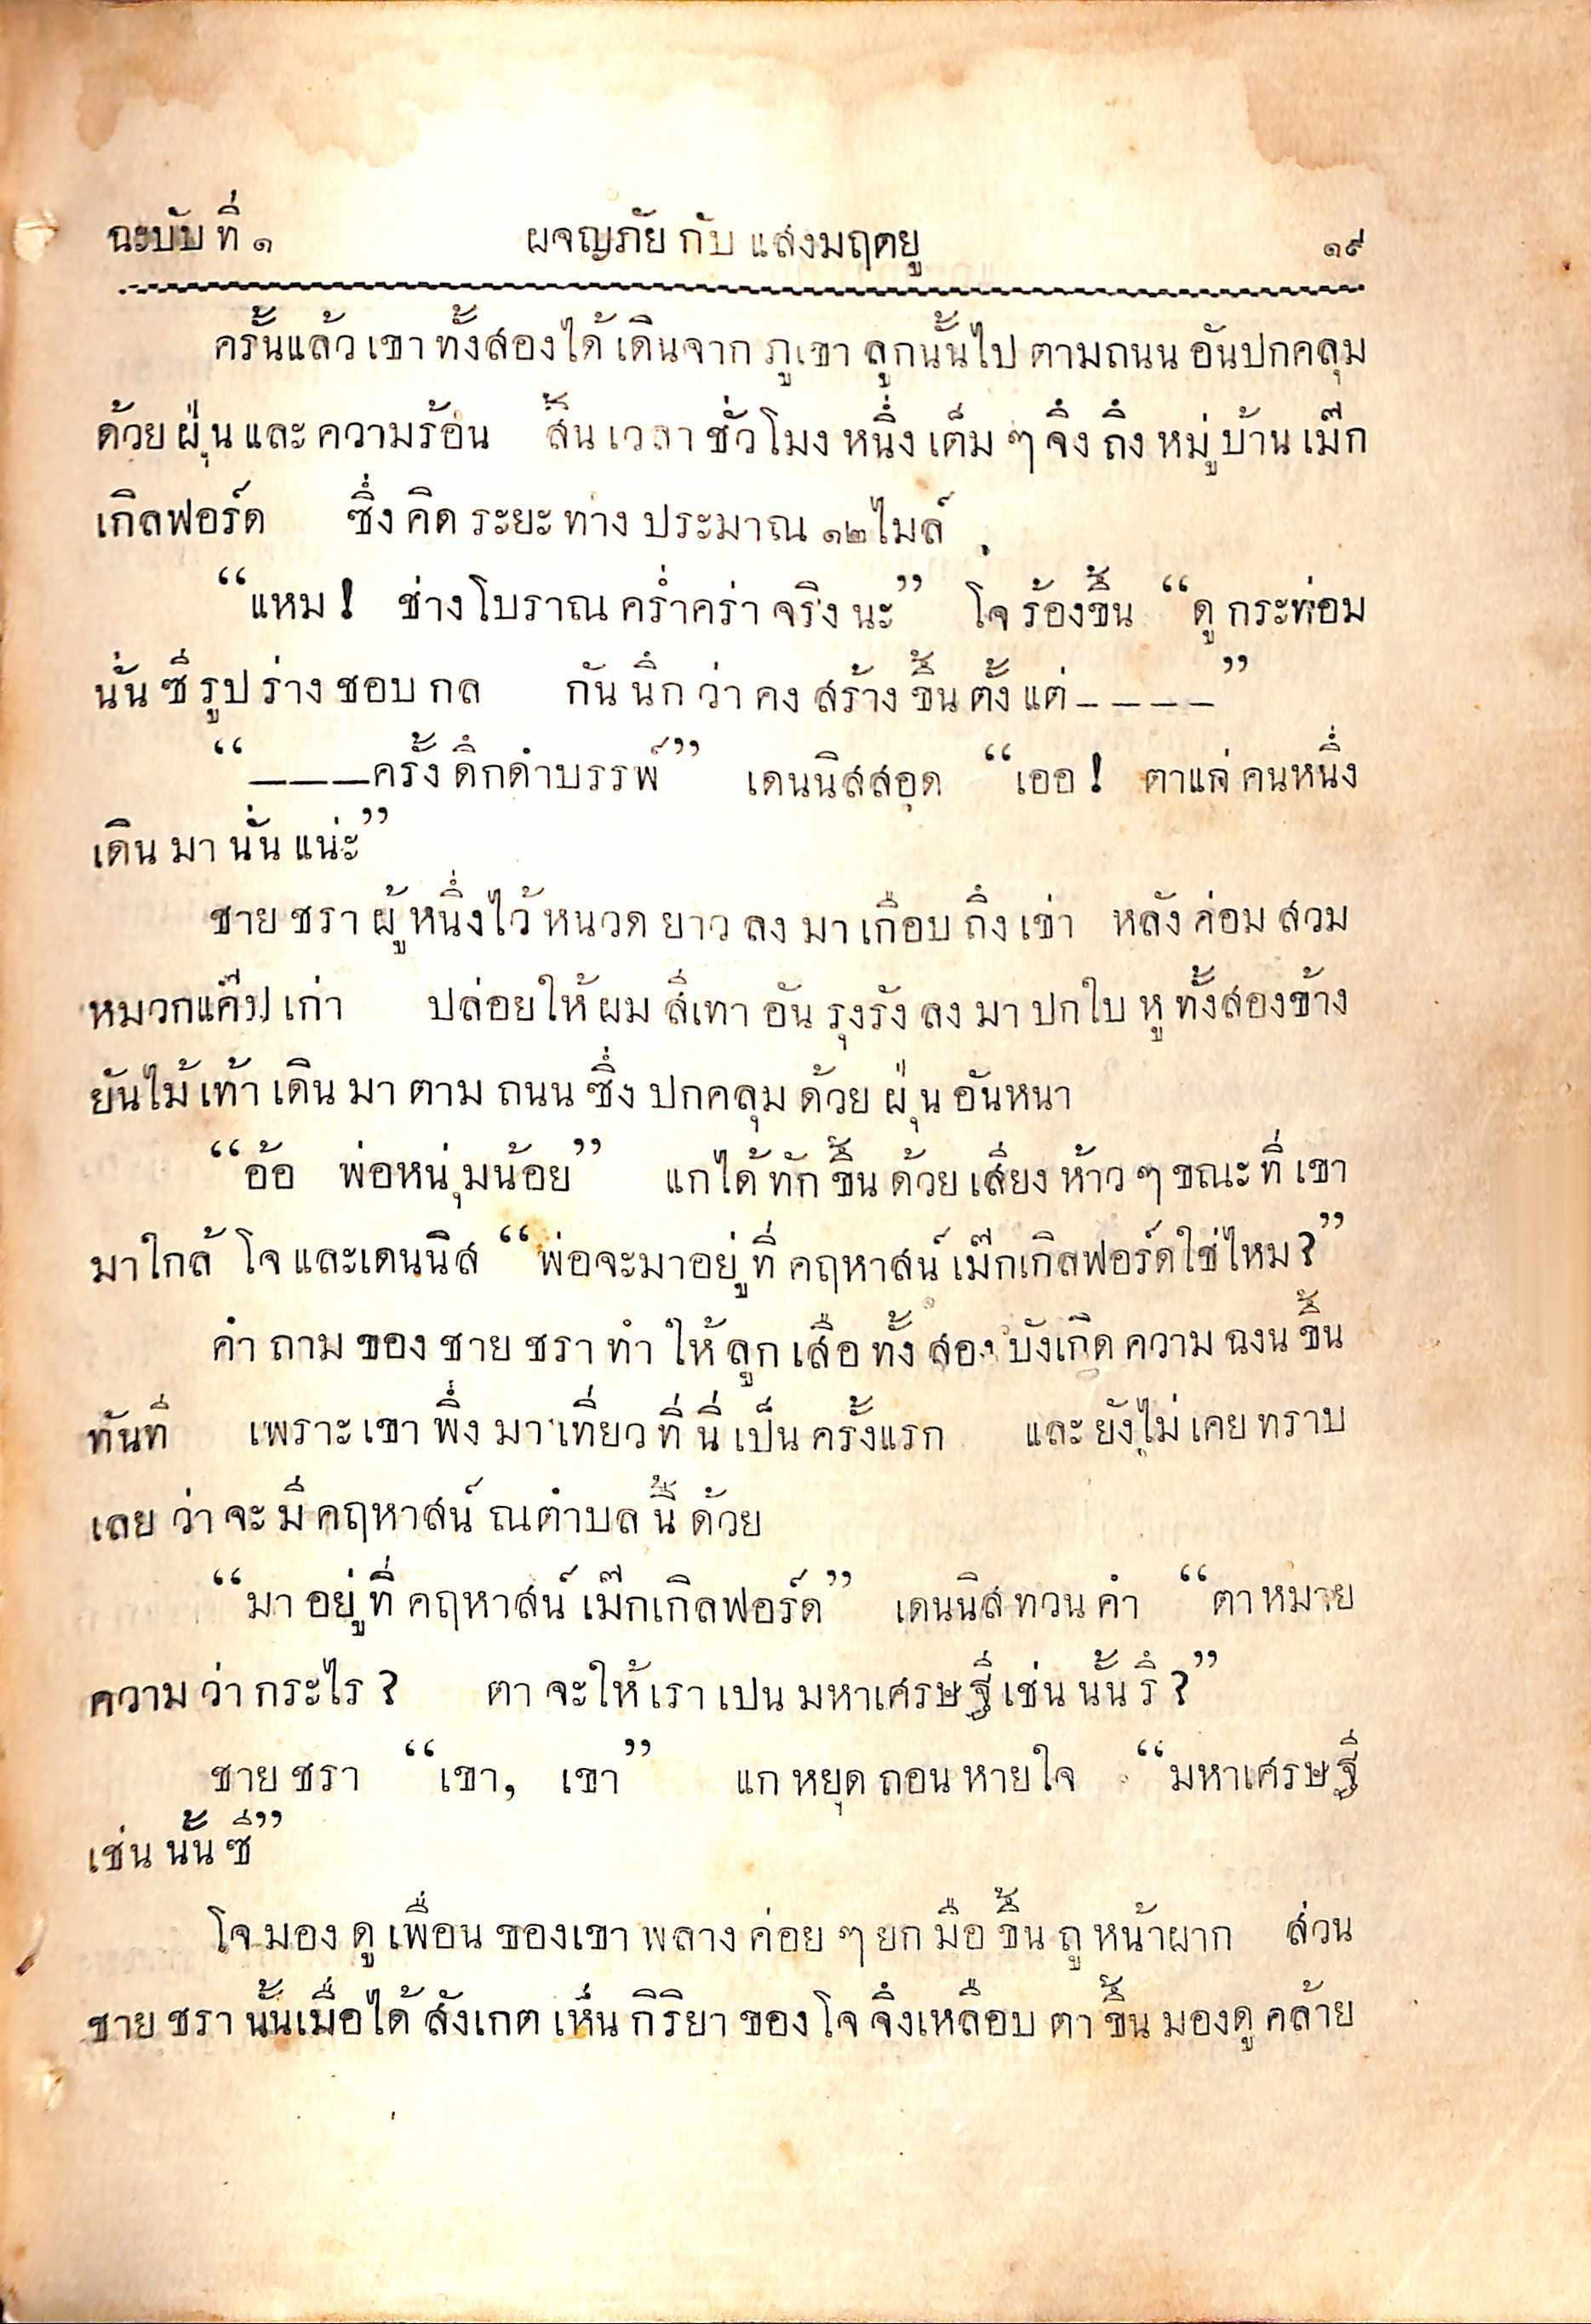 ฉะบับที่ ๑ ผจญภัยกับแสงมฤตยู ๑๙
ครั้นแล้วเขาทั้งสองได้เดินจากภูเขาลูกนั้นไปตามถนนอันปกคลุม
ด้วยฝุ่นและความร้อน สิ้นเวลาชั่วโมงหนึ่งเต็มๆจึงถึงหมู่บ้านเม๊ก
เกิลฟอร์ด ซึ่งคิดระยะทางประมาณ ๑๒ ไมล์
“แหม! ช่างโบราณคร่ำคร่าจริงนะ” โจร้องขึ้น “ดูกระท่อม
นั่นซีรูปร่างชอบกล กันนึกว่าคงสร้างขึ้นตั้งแต่----”
“---ครั้งดึกดำบรรพ์” เดนนิสสอด “เออ! ตาแก่คนหนึ่ง
เดินมานั่นแน่ะ”
ชายชราผู้หนึ่งไว้หนวดยาวลงมาเกือบถึงเข่า หลังค่อมสวม
หมวกแค๊ปเก่า ปล่อยให้ผมสีเทาอันรุงรังลงมาปกใบหูทั้งสองข้าง
ยันไม้เท้าเดินมาตามถนนซึ่งปกคลุมด้วยฝุ่นอันหนา
“อ้อ พ่อหนุ่มน้อย” แกได้ทักขึ้นด้วยเสียงห้าวๆขณะที่เขา
มาใกล้โจและเดนนิส “พ่อจะมาอยู่ที่คฤหาสน์เม๊กเกิลฟอร์ดใช่ไหม?”
คำถามของชายชราทำให้ลูกเสือทั้งสองบังเกิดความฉงนขึ้น
ทันที เพราะเขาพึ่งมาเที่ยวที่นี่เป็นครั้งแรก และยังไม่เคยทราบ
เลยว่าจะมีคฤหาสน์ณตำบลนี้ด้วย
“มาอยู่ที่คฤหาสน์เม๊กเกิลฟอร์ด” เดนนิสทวนคำ “ตาหมาย
ความว่ากระไร? ตาจะให้เราเปนมหาเศรษฐีเช่นนั้นรึ?”
ชายชรา “เขา, เขา” แกหยุดถอนหายใจ “มหาเศรษฐี
เช่นนั้นซี”
โจมองดูเพื่อนของเขาพลางค่อยๆยกมือขึ้นถูหน้าผาก ส่วน
ชายชรานั้นเมื่อได้สังเกตเห็นกิริยาของโจจึงเหลือบตาขึ้นมองดูคล้าย